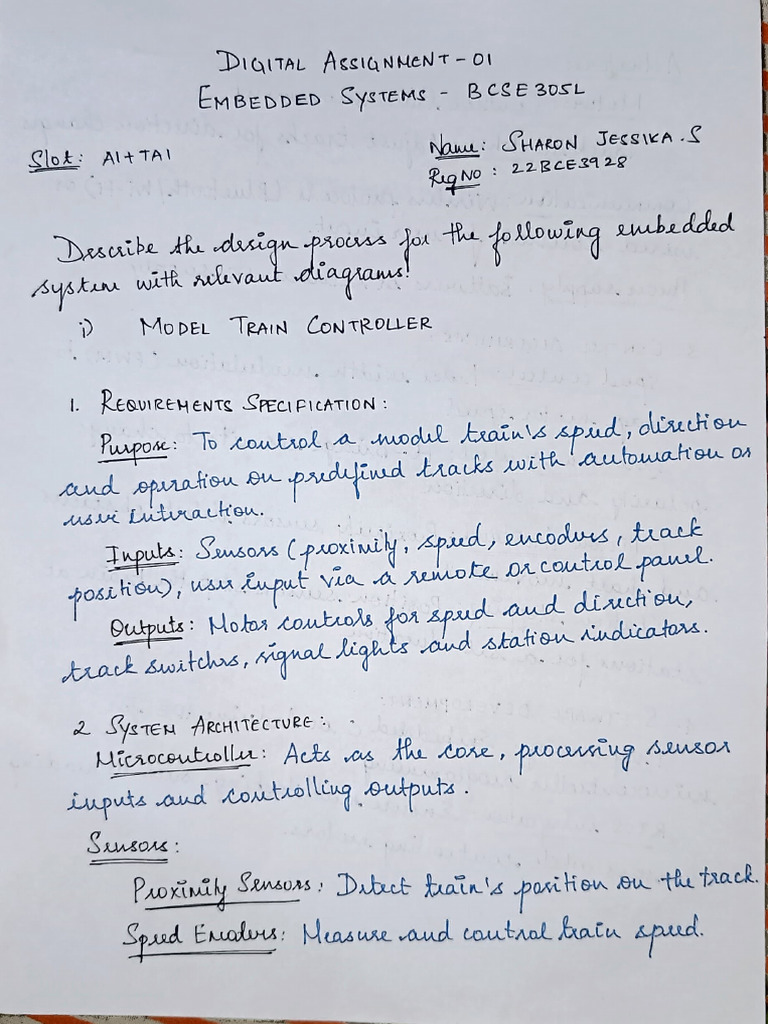 DIGITAL ASSIGNMENT-01
EMBEDDED SYSTEMS - BCSE305L
Slot: A1+TA1
Name: SHARON JESSIKA.S
Reg No: 22BCE3928
Describe the design process for the following embedded
system with relevant diagrams!
i) MODEL TRAIN CONTROLLER
1. REQUIREMENTS SPECIFICATION:
Purpose: To control a model train's speed, direction
and operation on predefined tracks with automation or
user interaction.
Inputs: Sensors (proximity, speed, encoders, track
position), user input via a remote or control panel.
Outputs: Motor controls for speed and direction,
track switches, signal lights and station indicators.
2 SYSTEM ARCHITECTURE:
Microcontroller: Acts as the core, processing sensor
inputs and controlling outputs.
Sensors:
Proximity Sensors: Detect train's position on the track.
Speed Encoders: Measure and control train speed.